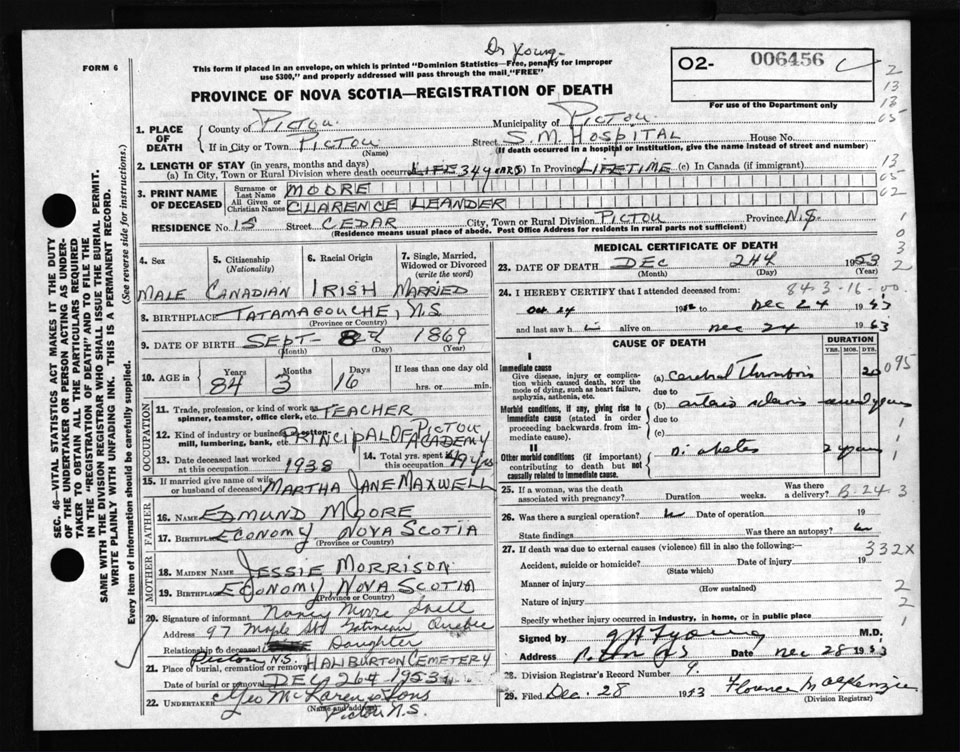 Dr Young.
FORM 6
This form if placed in an envelope, on which is printed "Dominion Statistics—Free, penalty for improper
use $300," and properly addressed will pass through the mail "FREE"
O2- 006456
For use of the Department only
PROVINCE OF NOVA SCOTIA—REGISTRATION OF DEATH
1. PLACE OF DEATH { County of PICTOU. Municipality of PICTOU.
If in City or Town PICTOU (Name) Street S.M. HOSPITAL House No.
(If death occurred in a hospital or institution, give the name instead of street and number)
2. LENGTH OF STAY (in years, months and days)
(a) In City, Town or Rural Division where death occurred LIFE 34 YEARS (b) In Province LIFETIME (c) In Canada (if immigrant)
3. PRINT NAME OF DECEASED { Surname or Last Name MOORE
All Given or Christian Names CLARENCE LEANDER
RESIDENCE No. 15 Street CEDAR City, Town or Rural Division PICTOU Province N.S.
(Residence means usual place of abode. Post Office Address for residents in rural parts not sufficient)
4. Sex 5. Citizenship (Nationality) 6. Racial Origin 7. Single, Married, Widowed or Divorced (write the word)
MALE CANADIAN IRISH MARRIED
8. BIRTHPLACE TATAMAGOUCHE, N.S.
(Province or Country)
9. DATE OF BIRTH SEPT- 8 1869
(Month) (Day) (Year)
10. AGE in { Years 84 Months 3 Days 16 If less than one day old hrs. or min.
OCCUPATION
11. Trade, profession, or kind of work as spinner, teamster, office clerk, etc. TEACHER
12. Kind of industry or business, as cotton-mill, lumbering, bank, etc. PRINCIPAL OF PICTOU ACADEMY
13. Date deceased last worked at this occupation 1938 14. Total yrs. spent in this occupation 49 yrs
15. If married give name of wife or husband of deceased MARTHA JANE MAXWELL
FATHER
16. NAME EDMUND MOORE
17. BIRTHPLACE ECONOMY NOVA SCOTIA
(Province or Country)
MOTHER
18. MAIDEN NAME JESSIE MORRISON
19. BIRTHPLACE ECONOMY, NOVA SCOTIA
(Province or Country)
20. Signature of informant Nancy Moore
Address 97 Maple St Gatineau Quebec
Relationship to deceased Daughter
21. Place of burial, cremation or removal Pictou N.S. HALIBURTON CEMETERY
Date of burial or removal DEC 26th 1953
22. UNDERTAKER Geo McLaren & Sons
(Name and Address) Pictou N.S.
MEDICAL CERTIFICATE OF DEATH
23. DATE OF DEATH DEC 24th 1953
(Month) (Day) (Year)
84-3-16-00
24. I HEREBY CERTIFY that I attended deceased from:
Oct 24 19 Dec 24 1953
and last saw h i alive on Dec 24 1953
CAUSE OF DEATH DURATION
YRS. MOS. DYS.
I
Immediate cause
Give disease, injury or complication which caused death, NOT the mode of dying, such as heart failure, asphyxia, asthenia, etc.
(a) Cerebral Thrombosis 20
due to
Morbid conditions, if any, giving rise to immediate cause (stated in order proceeding backwards from immediate cause).
(b) arterio sclerosis several years
due to
(c)
II
Other morbid conditions (if important) contributing to death but not causally related to immediate cause.
Diabetes 2 years
25. If a woman, was the death associated with pregnancy? Duration weeks. Was there a delivery? B-24-3
26. Was there a surgical operation? Date of operation 19
State findings Was there an autopsy?
27. If death was due to external causes (violence) fill in also the following:—
332x
Accident, suicide or homicide? Date of injury 19
(State which)
Manner of injury
(How sustained)
Nature of injury
Specify whether injury occurred in industry, in home, or in public place
Signed by Young M.D.
Address Pictou NS Date Dec 28 1953
28. Division Registrar's Record Number 9.
29. Filed Dec. 28 1953 Florence MacKenzie
(Division Registrar)
SEC. 46—VITAL STATISTICS ACT MAKES IT THE DUTY
OF THE UNDERTAKER OR PERSON ACTING AS UNDER-
TAKER TO OBTAIN ALL THE PARTICULARS REQUIRED
IN THE "REGISTRATION OF DEATH" AND TO FILE THE
SAME WITH THE DIVISION REGISTRAR WHO SHALL ISSUE THE BURIAL PERMIT.
WRITE PLAINLY WITH UNFADING INK. THIS IS A PERMANENT RECORD.
Every item of information should be carefully supplied. (See reverse side for instructions.)
2
13
13
05
13
05
02
1
0
3
2
095
1
1
1
1
3
2
2
1